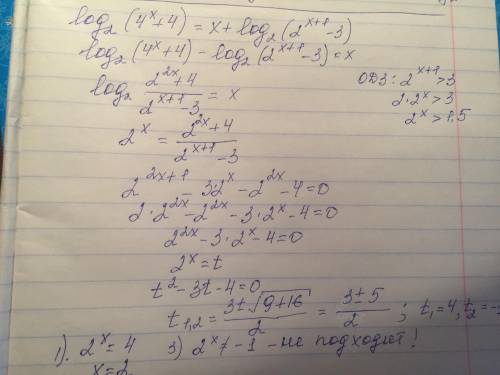 log₂(4ˣ+4) = x + log₂(2ˣ⁺¹-3)
log₂(4ˣ+4) - log₂(2ˣ⁺¹-3) = x
log₂ (2²ˣ+4)/(2ˣ⁺¹-3) = x
ОДЗ: 2ˣ⁺¹>3
2·2ˣ>3
2ˣ>1,5
2ˣ = (2²ˣ+4)/(2ˣ⁺¹-3)
2²ˣ⁺¹ - 3·2ˣ - 2²ˣ - 4 = 0
2·2²ˣ - 2²ˣ - 3·2ˣ - 4 = 0
2²ˣ - 3·2ˣ - 4 = 0
2ˣ = t
t² - 3t - 4 = 0
t₁,₂ = (3±√(9+16))/2 = (3±5)/2 ; t₁=4, t₂=-
1). 2ˣ = 4 3) 2ˣ ≠ -1 - не подходит!
x = 2